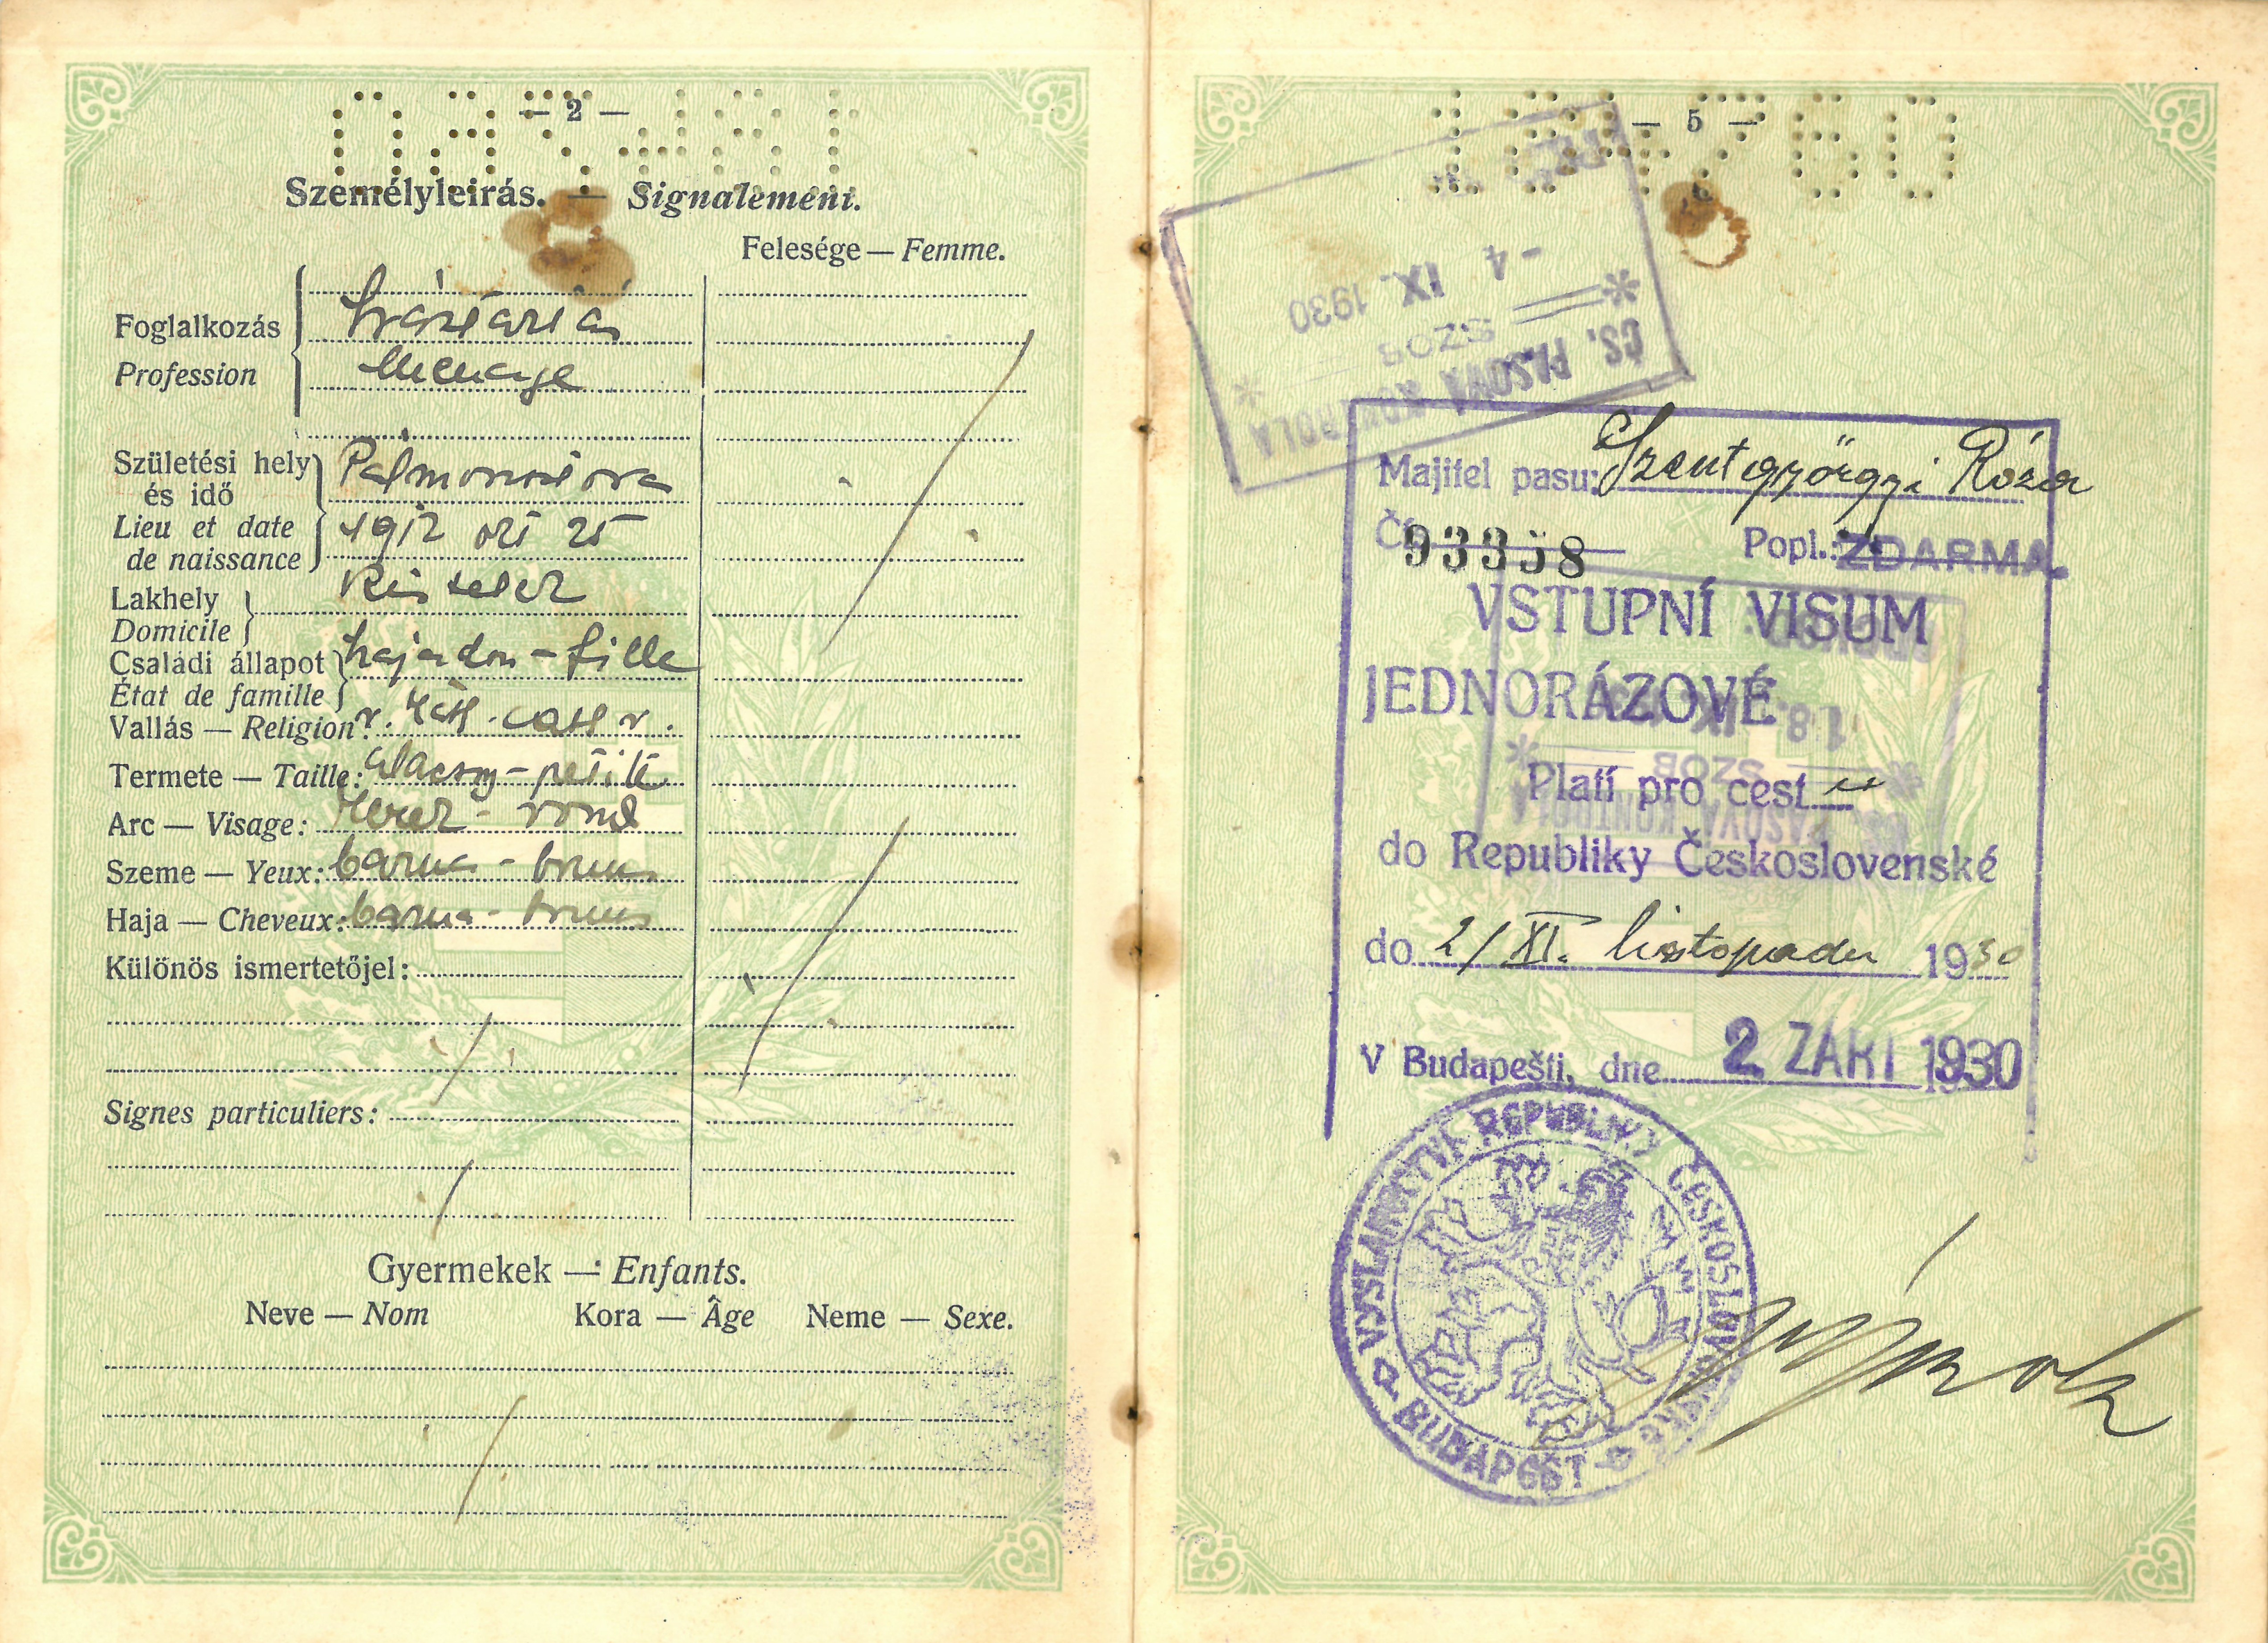 — 2 —
Személyleirás. — Signalement.
Felesége — Femme.
Foglalkozás
Háztartás
Profession
Menage
Születési hely
és idő
Lieu et date
de naissance
1912 okt 25
Lakhely
Domicile
Családi állapot
État de famille
hajadon - fille
Vallás — Religion: r. kath. cath r.
Termete — Taille: alacsony - petite
Arc — Visage: kerek - rond
Szeme — Yeux: barna - bruns
Haja — Cheveux: barna - bruns
Különös ismertetőjel:
Signes particuliers:
Gyermekek — Enfants.
Neve — Nom Kora — Âge Neme — Sexe.
— 5 —
164760
ČS. PASOVÁ KONTROLA
* SZOB *
- 4 IX. 1930
Majitel pasu: Szentgyörgyi Róza
Č. 93358 Popl.: ZDARMA.
VSTUPNÍ VISUM
JEDNORÁZOVÉ
Platí pro cest u
do Republiky Československé
do 2/XI. listopadu 1930
V Budapešti, dne 2 ZÁŘÍ 1930
ČS. PASOVÁ KONTROLA
* SZOB *
18. IX.
VYSLANECTVÍ REPUBLIKY ČESKOSLOVENSKÉ
BUDAPEŠŤ